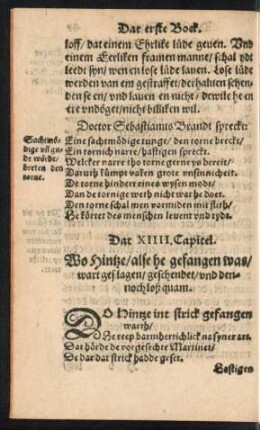 Dat erste Boek.
loff/ dat einem Ehrlike lüde geuen. Vnd
einem Eerliken framen manne/ schal ydt
leedt syn/ wen en lose lüde lauen. Lose lüde
werden van em gestraffet/ derhaluen schen-
den se en/ vnd lauen en nicht/ dewile he en
ere vndöget/ nicht billiken wil.
Doctor Sebastianus Brandt spreckt:
Sachtmö-
dige
de würde/
breken den
torne.
Eine sachtmödige tunge/ den torne breckt/
Ein tornich narre/ hastigen spreckt.
Welcker narre tho torne gerne ys bereit/
Daruth kümpt vaken grote vnsinnicheit.
De torne hindert einen wysen modt/
Dan de tornige weth nicht wat he doet.
Den torne schal men vormiden mit flith/
He körtet des menschen leuent vnd tydt.
Dat XIIII. Capitel.
Wo Hintze/ alse he gefangen was/
wart geslagen/ geschendet/ vnd den-
noch loß quam.
DO Hintze int strick gefangen
warth/
He reep barmhertichlick na syner art.
Dat hörde de vorgeschreue Martinet/
De dar dat strick hadde geset.
Lostigen